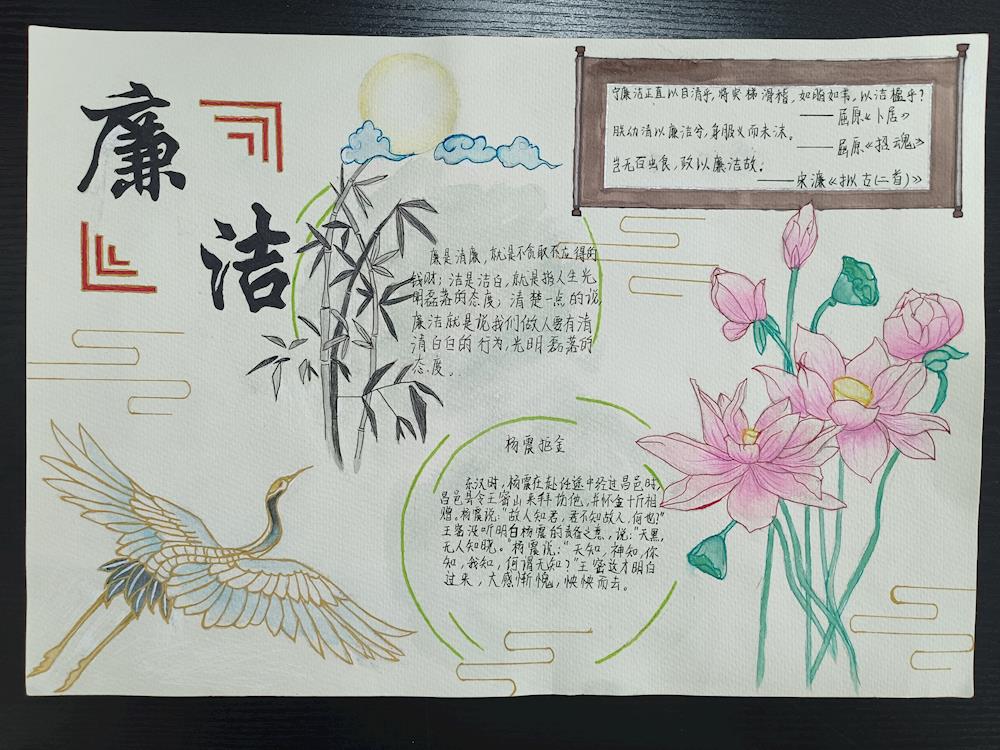 廉
洁
守廉洁正直以自清乎,将突梯滑稽,如脂如韦,以洁楹乎?
——屈原《卜居》
朕幼清以廉洁兮,身服义而未沫。
——屈原《招魂》
岂无百虫食,致以廉洁故。
——宋濂《拟古(二首)》
廉是清廉,就是不贪取不应得的
钱财;洁是洁白,就是指人生光
明磊落的态度;清楚一点的说,
廉洁就是说我们做人要有清
清白白的行为,光明磊落的
态度。
杨震拒金
东汉时,杨震在赴任途中经过昌邑时,
昌邑县令王密山来拜访他,并怀金十斤相
赠。杨震说:“故人知君,君不知故人,何也?”
王密没听明白杨震的责备之意,说:“天黑,
无人知晓。”杨震说:“天知,神知,你
知,我知,何谓无知?”王密这才明白
过来,大感惭愧,怏怏而去。